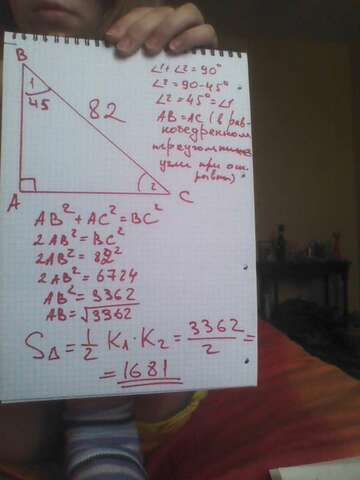 B
1
45
82
A
2
C
∠1+∠2=90°
∠2=90-45°
∠2=45°=∠1
AB=AC (в рав-
нобедренном
треугольнике
углы при осн.
равны)
AB²+AC²=BC²
2AB²=BC²
2AB²=82²
2AB²=6724
AB²=3362
AB=√3362
S△=1/2 K1·K2=3362/2=
=1681